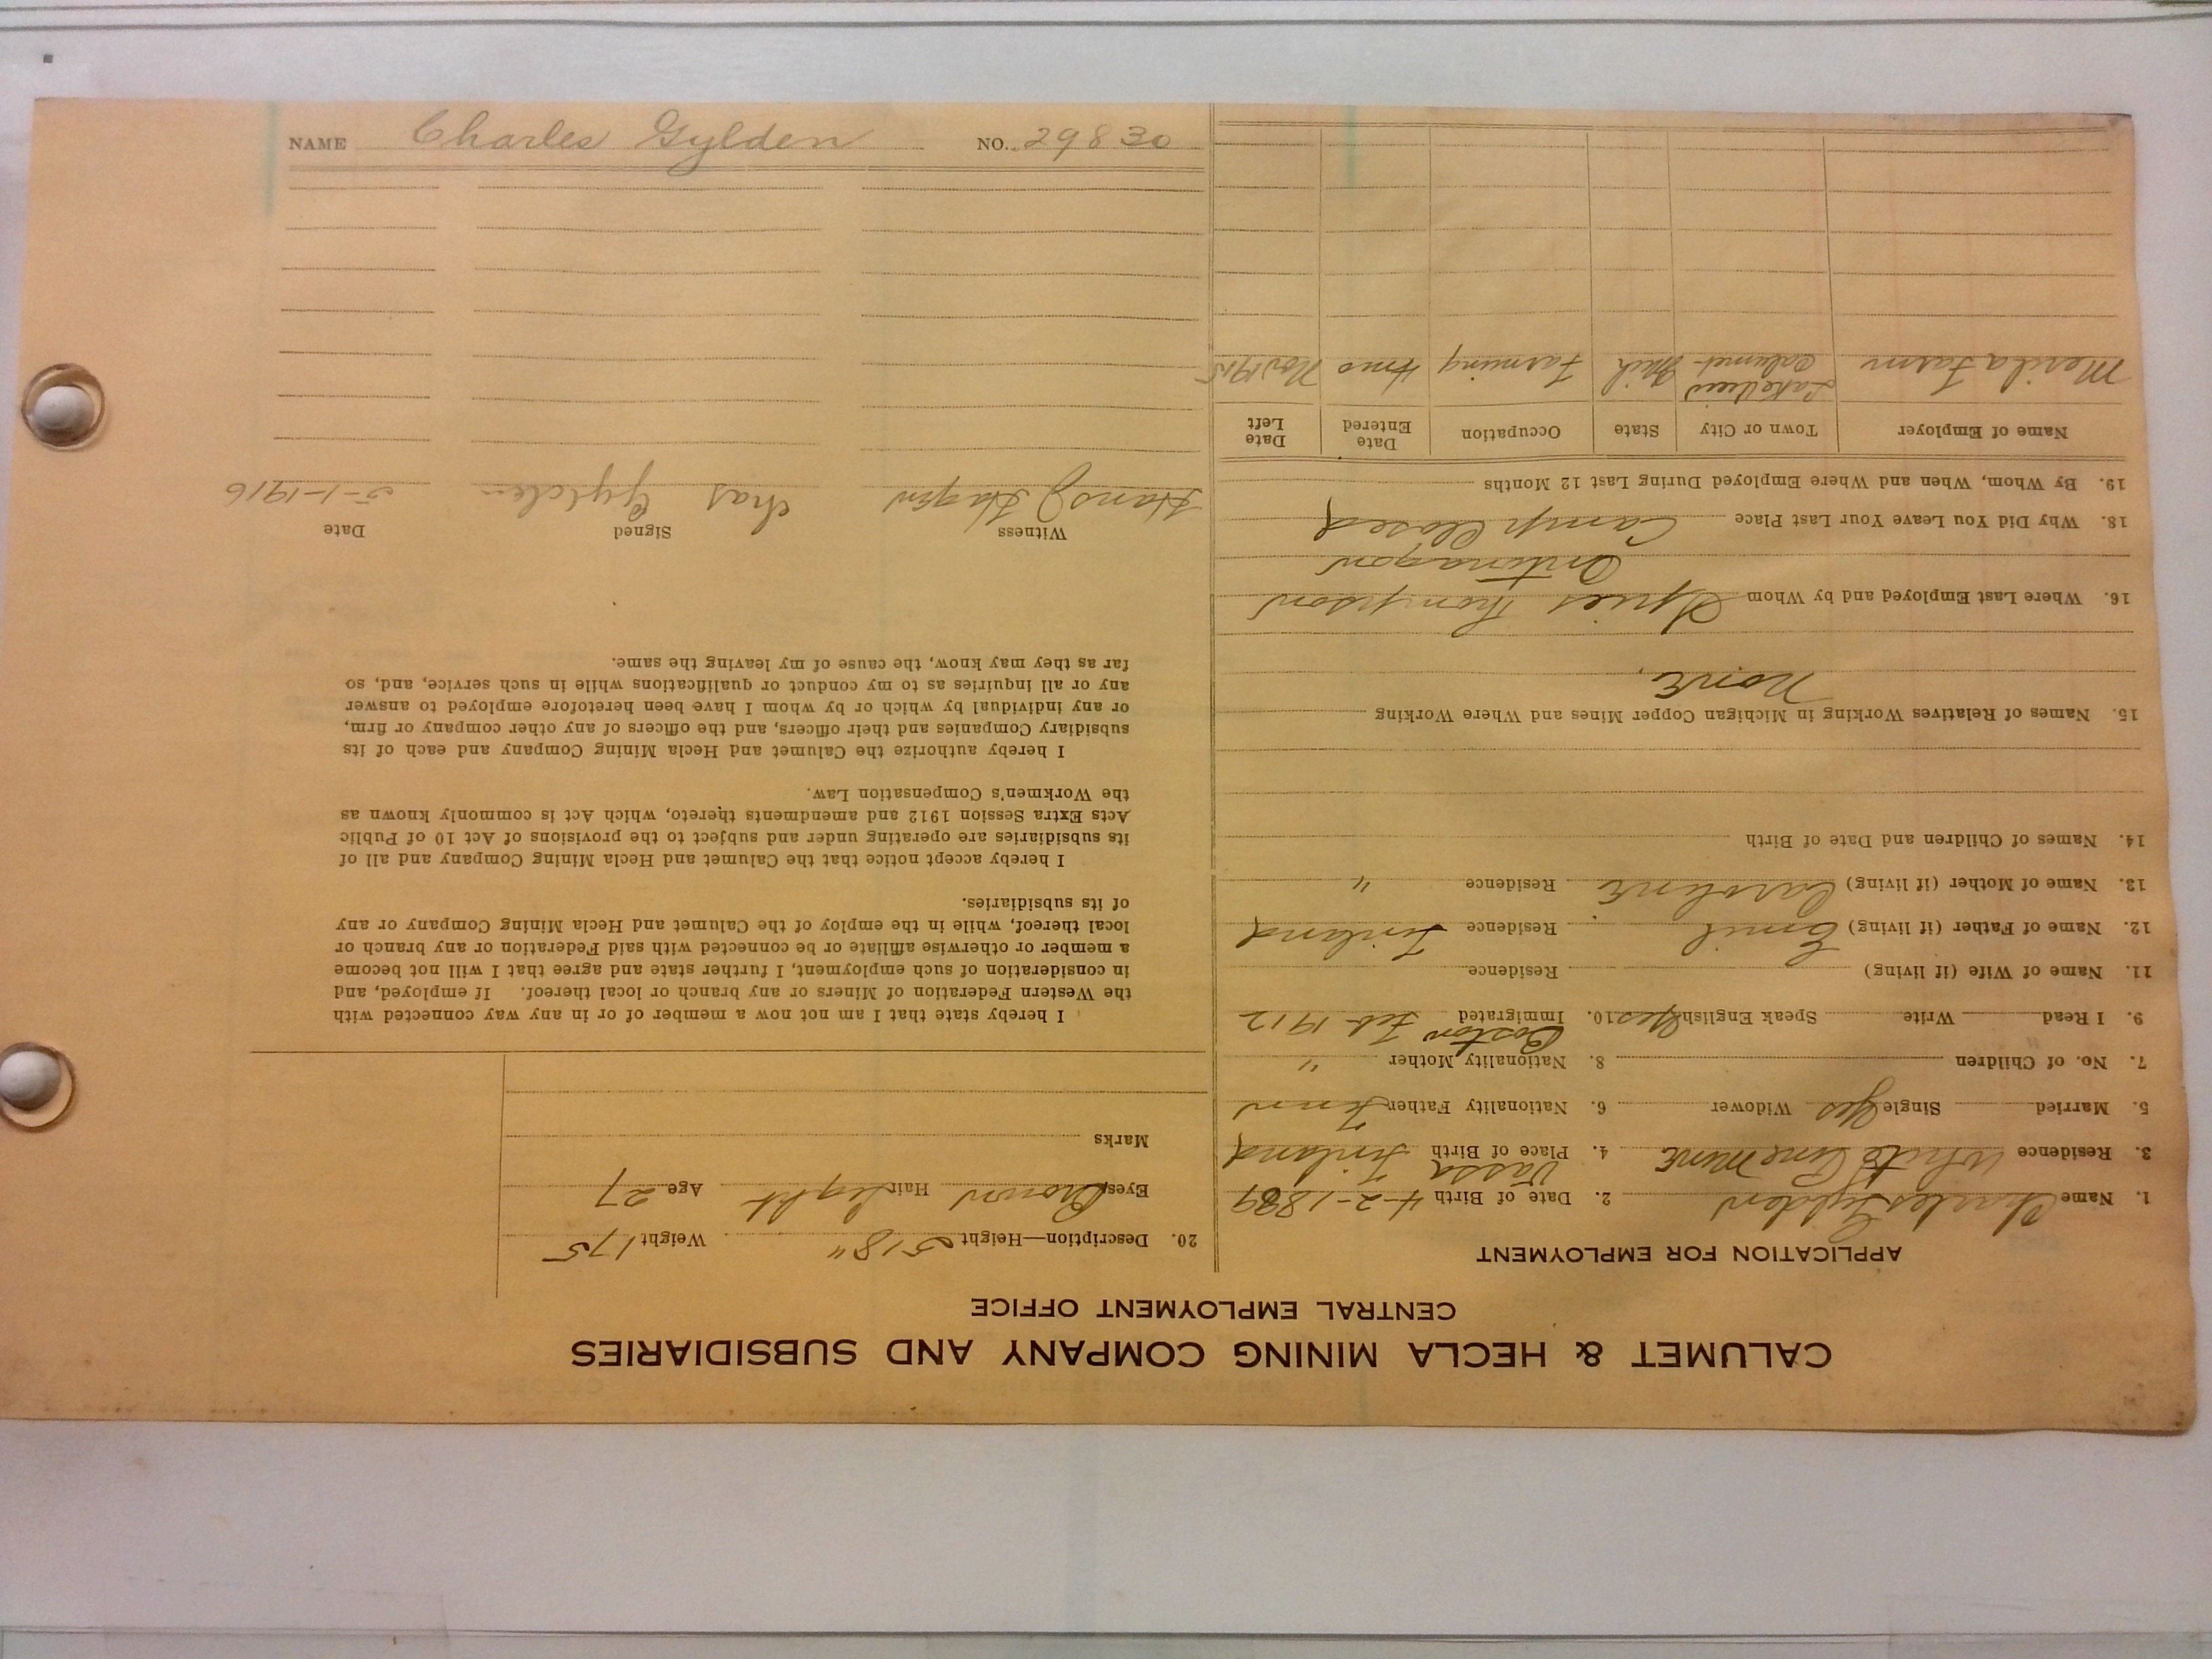 CALUMET & HECLA MINING COMPANY AND SUBSIDIARIES
CENTRAL EMPLOYMENT OFFICE
APPLICATION FOR EMPLOYMENT
1. Name Charles Gylden 2. Date of Birth 4-2-1889
3. Residence White Pine Mine 4. Place of Birth Vassa Finland
5. Married Single Yes Widower 6. Nationality Father Finn
7. No. of Children 8. Nationality Mother "
9. I Read Write Speak English Yes 10. Immigrated Boston Feb 1912
11. Name of Wife (if living) Residence
12. Name of Father (if living) Emil Residence Finland
13. Name of Mother (if living) Caroline Residence "
14. Names of Children and Date of Birth
15. Names of Relatives Working in Michigan Copper Mines and Where Working
None
16. Where Last Employed and by Whom Spies Thompson
Ontonagon
18. Why Did You Leave Your Last Place Camp Closed
19. By Whom, When and Where Employed During Last 12 Months
Name of Employer Town or City State Occupation Date Entered Date Left
Merila Farm Lake View Calumet Mich Mich Farming 4mo Nov 1915
20. Description—Height 5' 8" Weight 175
Eyes Brown Hair Light Age 27
Marks
I hereby state that I am not now a member of or in any way connected with
the Western Federation of Miners or any branch or local thereof. If employed, and
in consideration of such employment, I further state and agree that I will not become
a member or otherwise affiliate or be connected with said Federation or any branch or
local thereof, while in the employ of the Calumet and Hecla Mining Company or any
of its subsidiaries.
I hereby accept notice that the Calumet and Hecla Mining Company and all of
its subsidiaries are operating under and subject to the provisions of Act 10 of Public
Acts Extra Session 1912 and amendments thereto, which Act is commonly known as
the Workmen's Compensation Law.
I hereby authorize the Calumet and Hecla Mining Company and each of its
subsidiary Companies and their officers, and the officers of any other company or firm,
or any individual by which or by whom I have been heretofore employed to answer
any or all inquiries as to my conduct or qualifications while in such service, and, so
far as they may know, the cause of my leaving the same.
Witness Signed Date
Hans J Hagen Chas Gylden 5-1-1916
NAME Charles Gylden NO. 29830